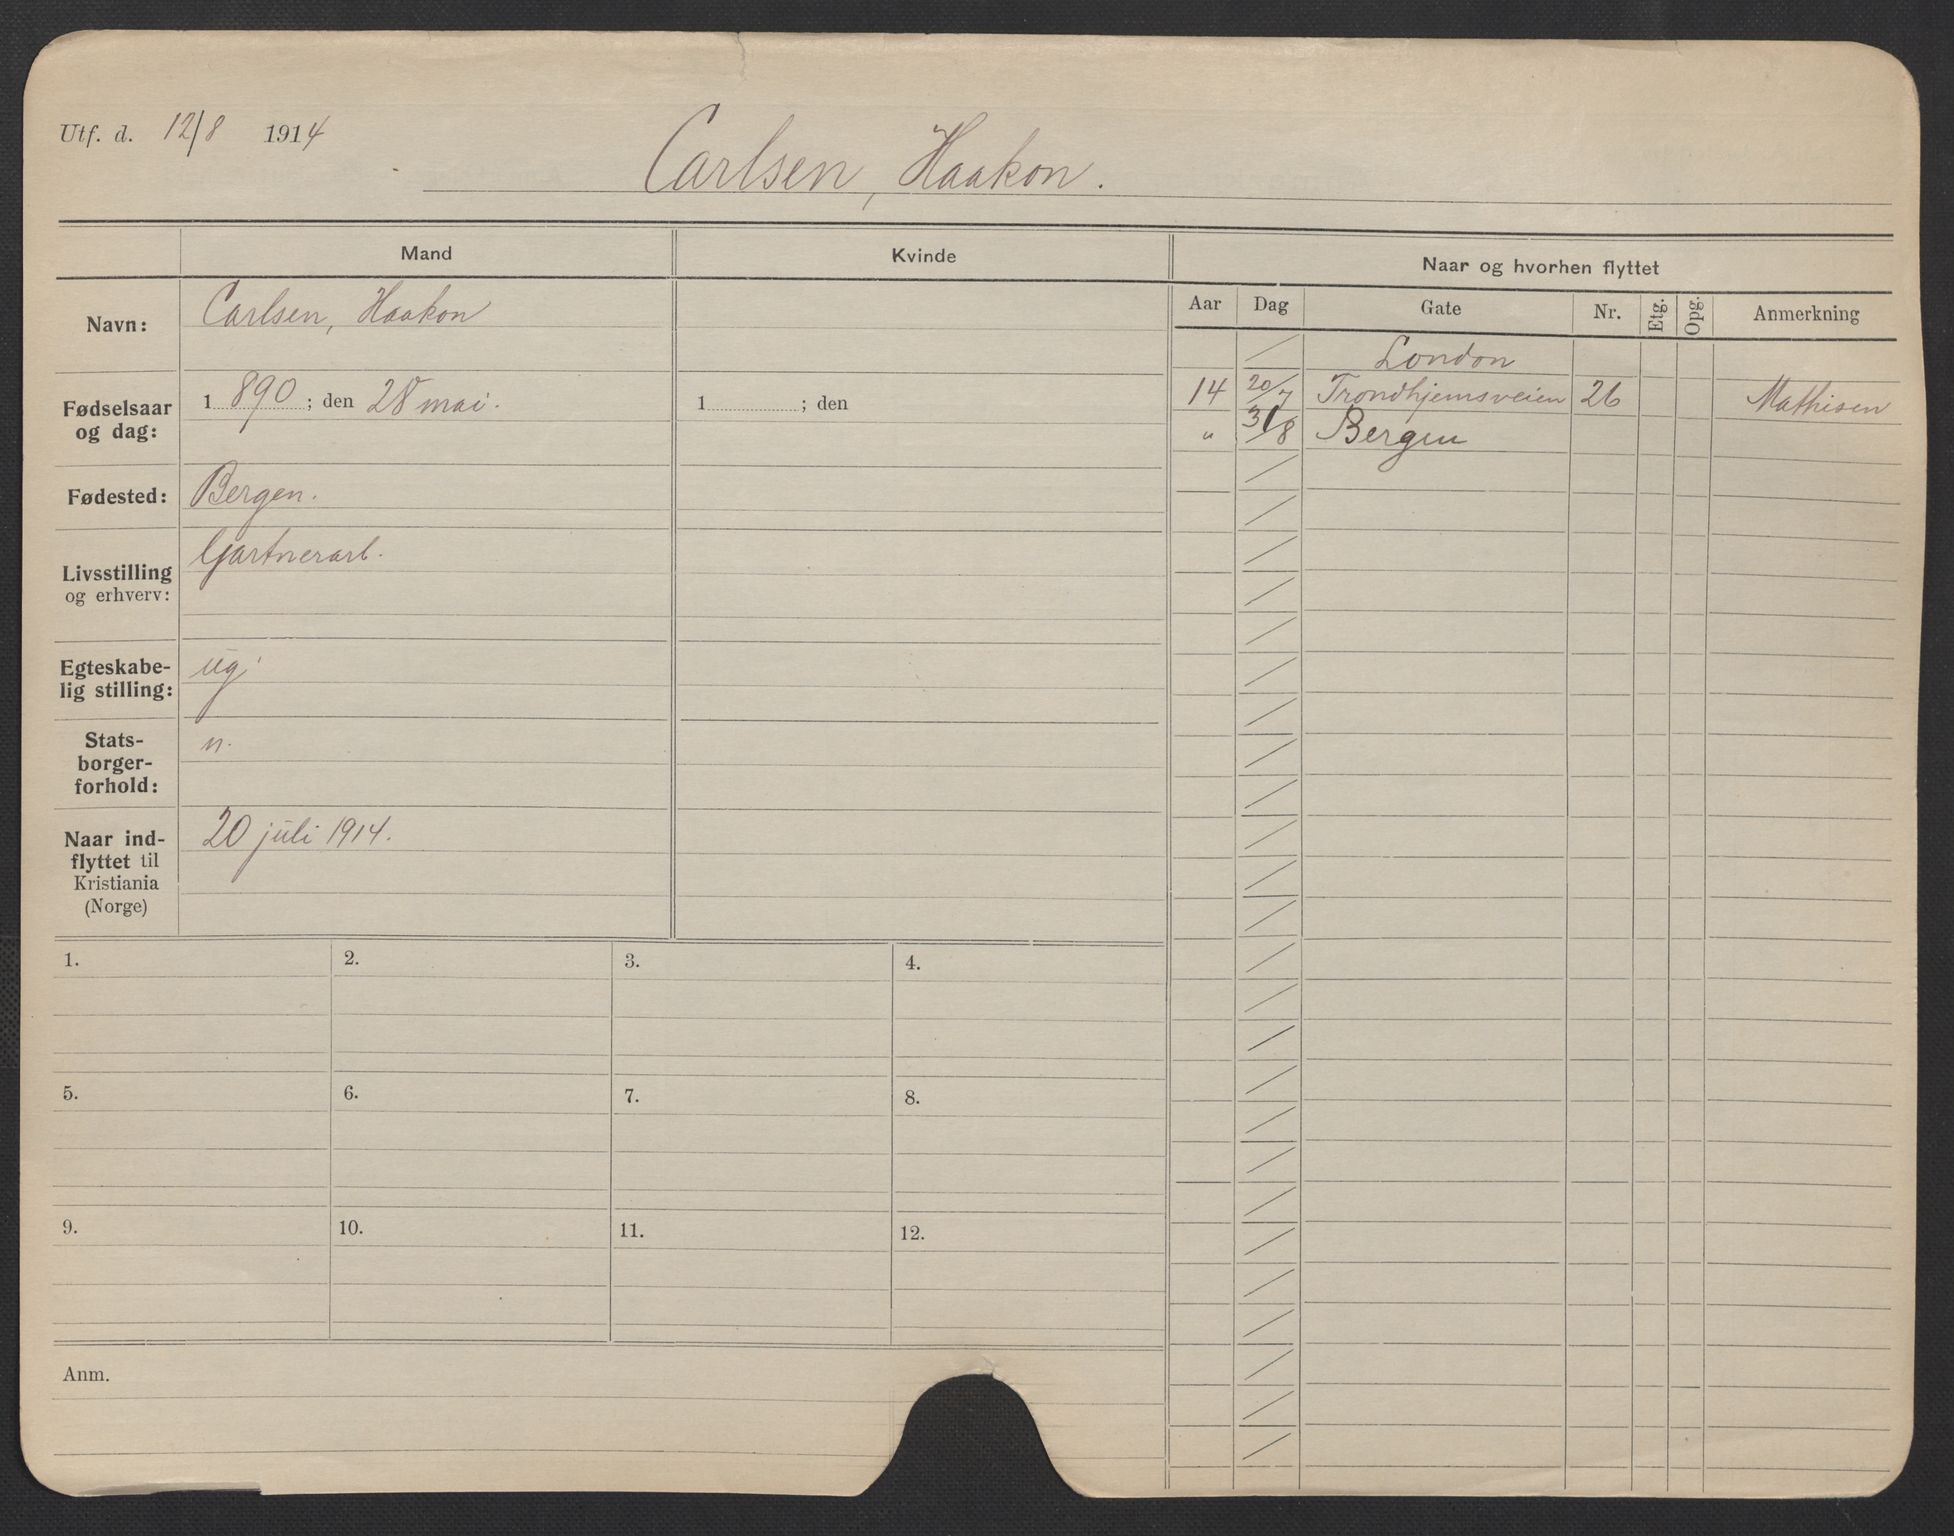 Utf. d. 12/8 1914
Carlsen, Haakon.
Mand
Kvinde
Naar og hvorhen flyttet
Aar Dag Gate Nr. Etg. Opg. Anmerkning
Navn: Carlsen, Haakon
Fødselsaar
og dag:
1 890 ; den 28 mai.
1 ; den
Fødested: Bergen.
Livsstilling
og erhverv:
Gartnerarb.
Egteskabe-
lig stilling:
ug.
Stats-
borger-
forhold:
n.
Naar ind-
flyttet til
Kristiania
(Norge)
20 juli 1914.
London
14 20/7 Trondhjemsveien 26 Mathisen
" 31/8 Bergen
1. 2. 3. 4.
5. 6. 7. 8.
9. 10. 11. 12.
Anm.